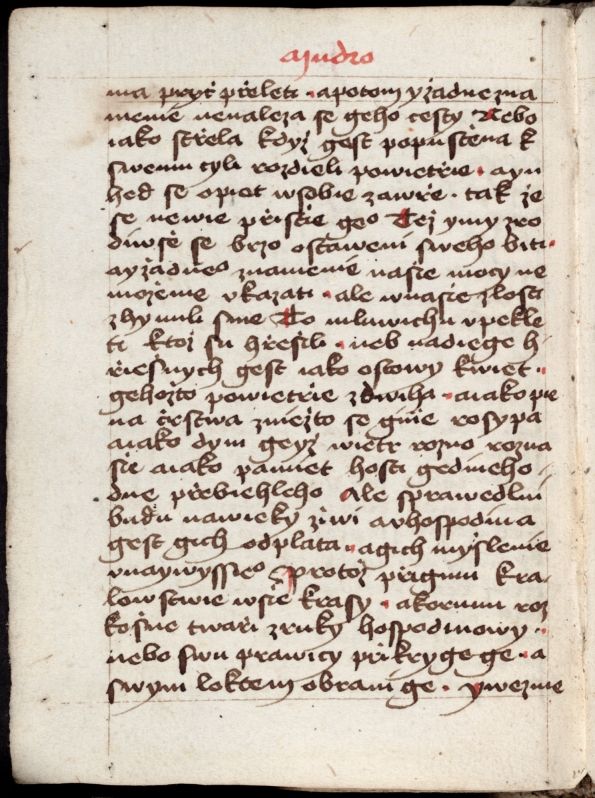 ajudro
ma pryč přeleti · a potom y žadne zna
menie nenaleza se geho cesty Nebo
iako střela kdyź gest popustěna k
swemu cyli rozdieli powietřie · a yn
hed se opiet w sobie zawře · tak źe
se newie přistie geo Též y my zro
diwše se brzo ostaweni sweho biti ·
a y žadneo znamenie nasie mocy ne
možeme vkazati · ale w nasie zlosti
zhynuli sme To mluwichu v pekle
ti ktoź su hřešili · neb nadiege h
řiešnych gest iako ostowy kwiet ·
gehožto powietřie zdwiha · a iako pie
na črstwa z niežto se ginie rosypa
a iako dym geyź wietr rozno rozna
šie a iako pamiet hosti gedineho
dne přebiehleho Ale sprawedlni
budu na wieky źiwi a v hospodina
gest gich odplata · a gich myšlenie
v naywyssieo Protož přigmu kra
lowstwie wšie krasy · a korunu roz
košne twaři z ruky hospodinowy ·
nebo swu prawicy prikryge ge · a
swym loktem obrani ge · y wezme